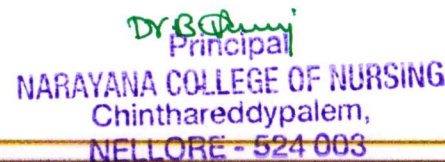 Dr B
Principal
NARAYANA COLLEGE OF NURSING
Chinthareddypalem,
NELLORE - 524 003